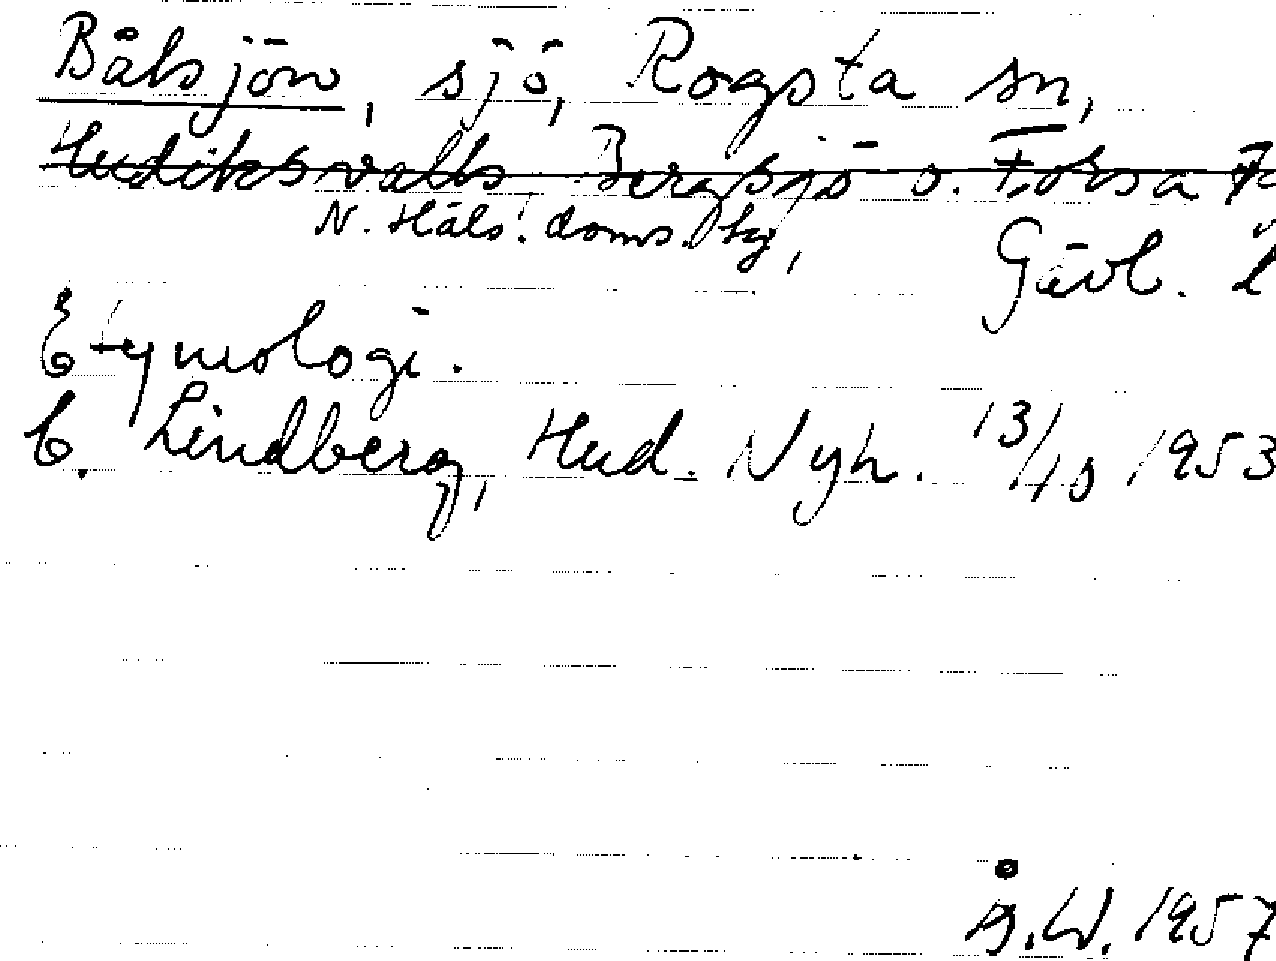 Bålsjön, sjö, Rogsta sn,
Hudiksvalls Bergsjö o. Forsa
N. Häls. doms. hg,
Gävl. l
Etymologi.
C. Lindberg, Hud. Nyh. 13/10 1953
Å.W. 1957